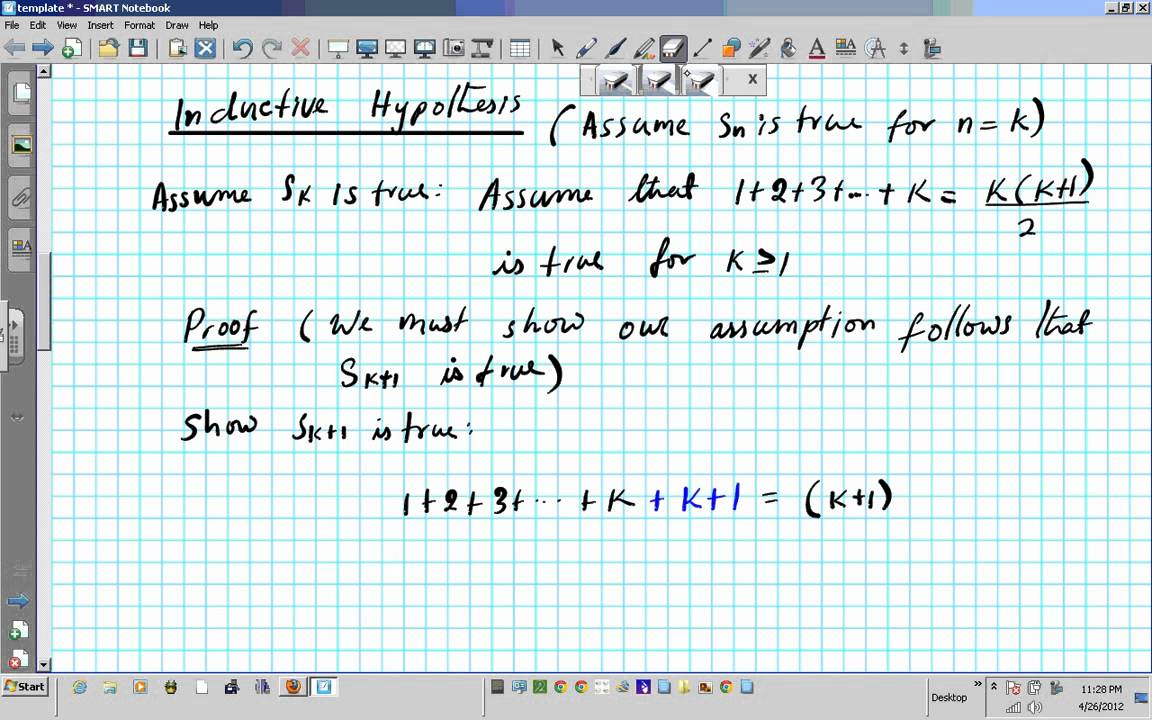 template * - SMART Notebook
File Edit View Insert Format Draw Help
Inductive Hypothesis (Assume Sn is true for n = K)
Assume SK is true: Assume that 1+2+3+...+K = K(K+1)/2
is true for K ≥ 1
Proof (We must show our assumption follows that
SK+1 is true)
Show SK+1 is true:
1+2+3+...+K+K+1 = (K+1)
Start
Desktop
11:28 PM
4/26/2012